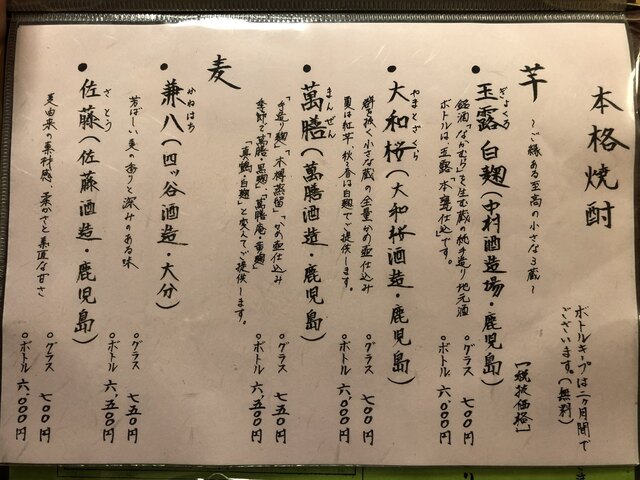 本格焼酎
ボトルキープは二ヶ月間で
ございます。(無料)
芋 ～ご縁ある至高の小さな3蔵～
[税抜価格]
・玉露 白麹 (中村酒造場・鹿児島)
ぎょくろ
銘酒「なかむら」を生む蔵の純手造り地元酒
ボトルは「玉露 本甕仕込」です。
○グラス 七〇〇円
○ボトル 六、〇〇〇円
・大和桜 (大和桜酒造・鹿児島)
やまとざくら
群を抜く小さな蔵の全量かめ壷仕込み
夏は紅芋、秋冬春は白麹でご提供します。
○グラス 七〇〇円
○ボトル 六、〇〇〇円
・萬膳 (萬膳酒造・鹿児島)
まんぜん
「手造り麹」「木樽蒸留」「かめ壷仕込み」
季節で「萬膳・黒麹」「萬膳庵・黄麹」
「真鶴・白麹」と変えてご提供します。
○グラス 七五〇円
○ボトル 六、五〇〇円
麦
・兼八 (四ッ谷酒造・大分)
かねはち
芳ばしい麦の香りと深みのある味
○グラス 七五〇円
○ボトル 六、五〇〇円
・佐藤 (佐藤酒造・鹿児島)
さとう
麦由来の素材感、柔かさと素直な甘さ
○グラス 七〇〇円
○ボトル 六、〇〇〇円